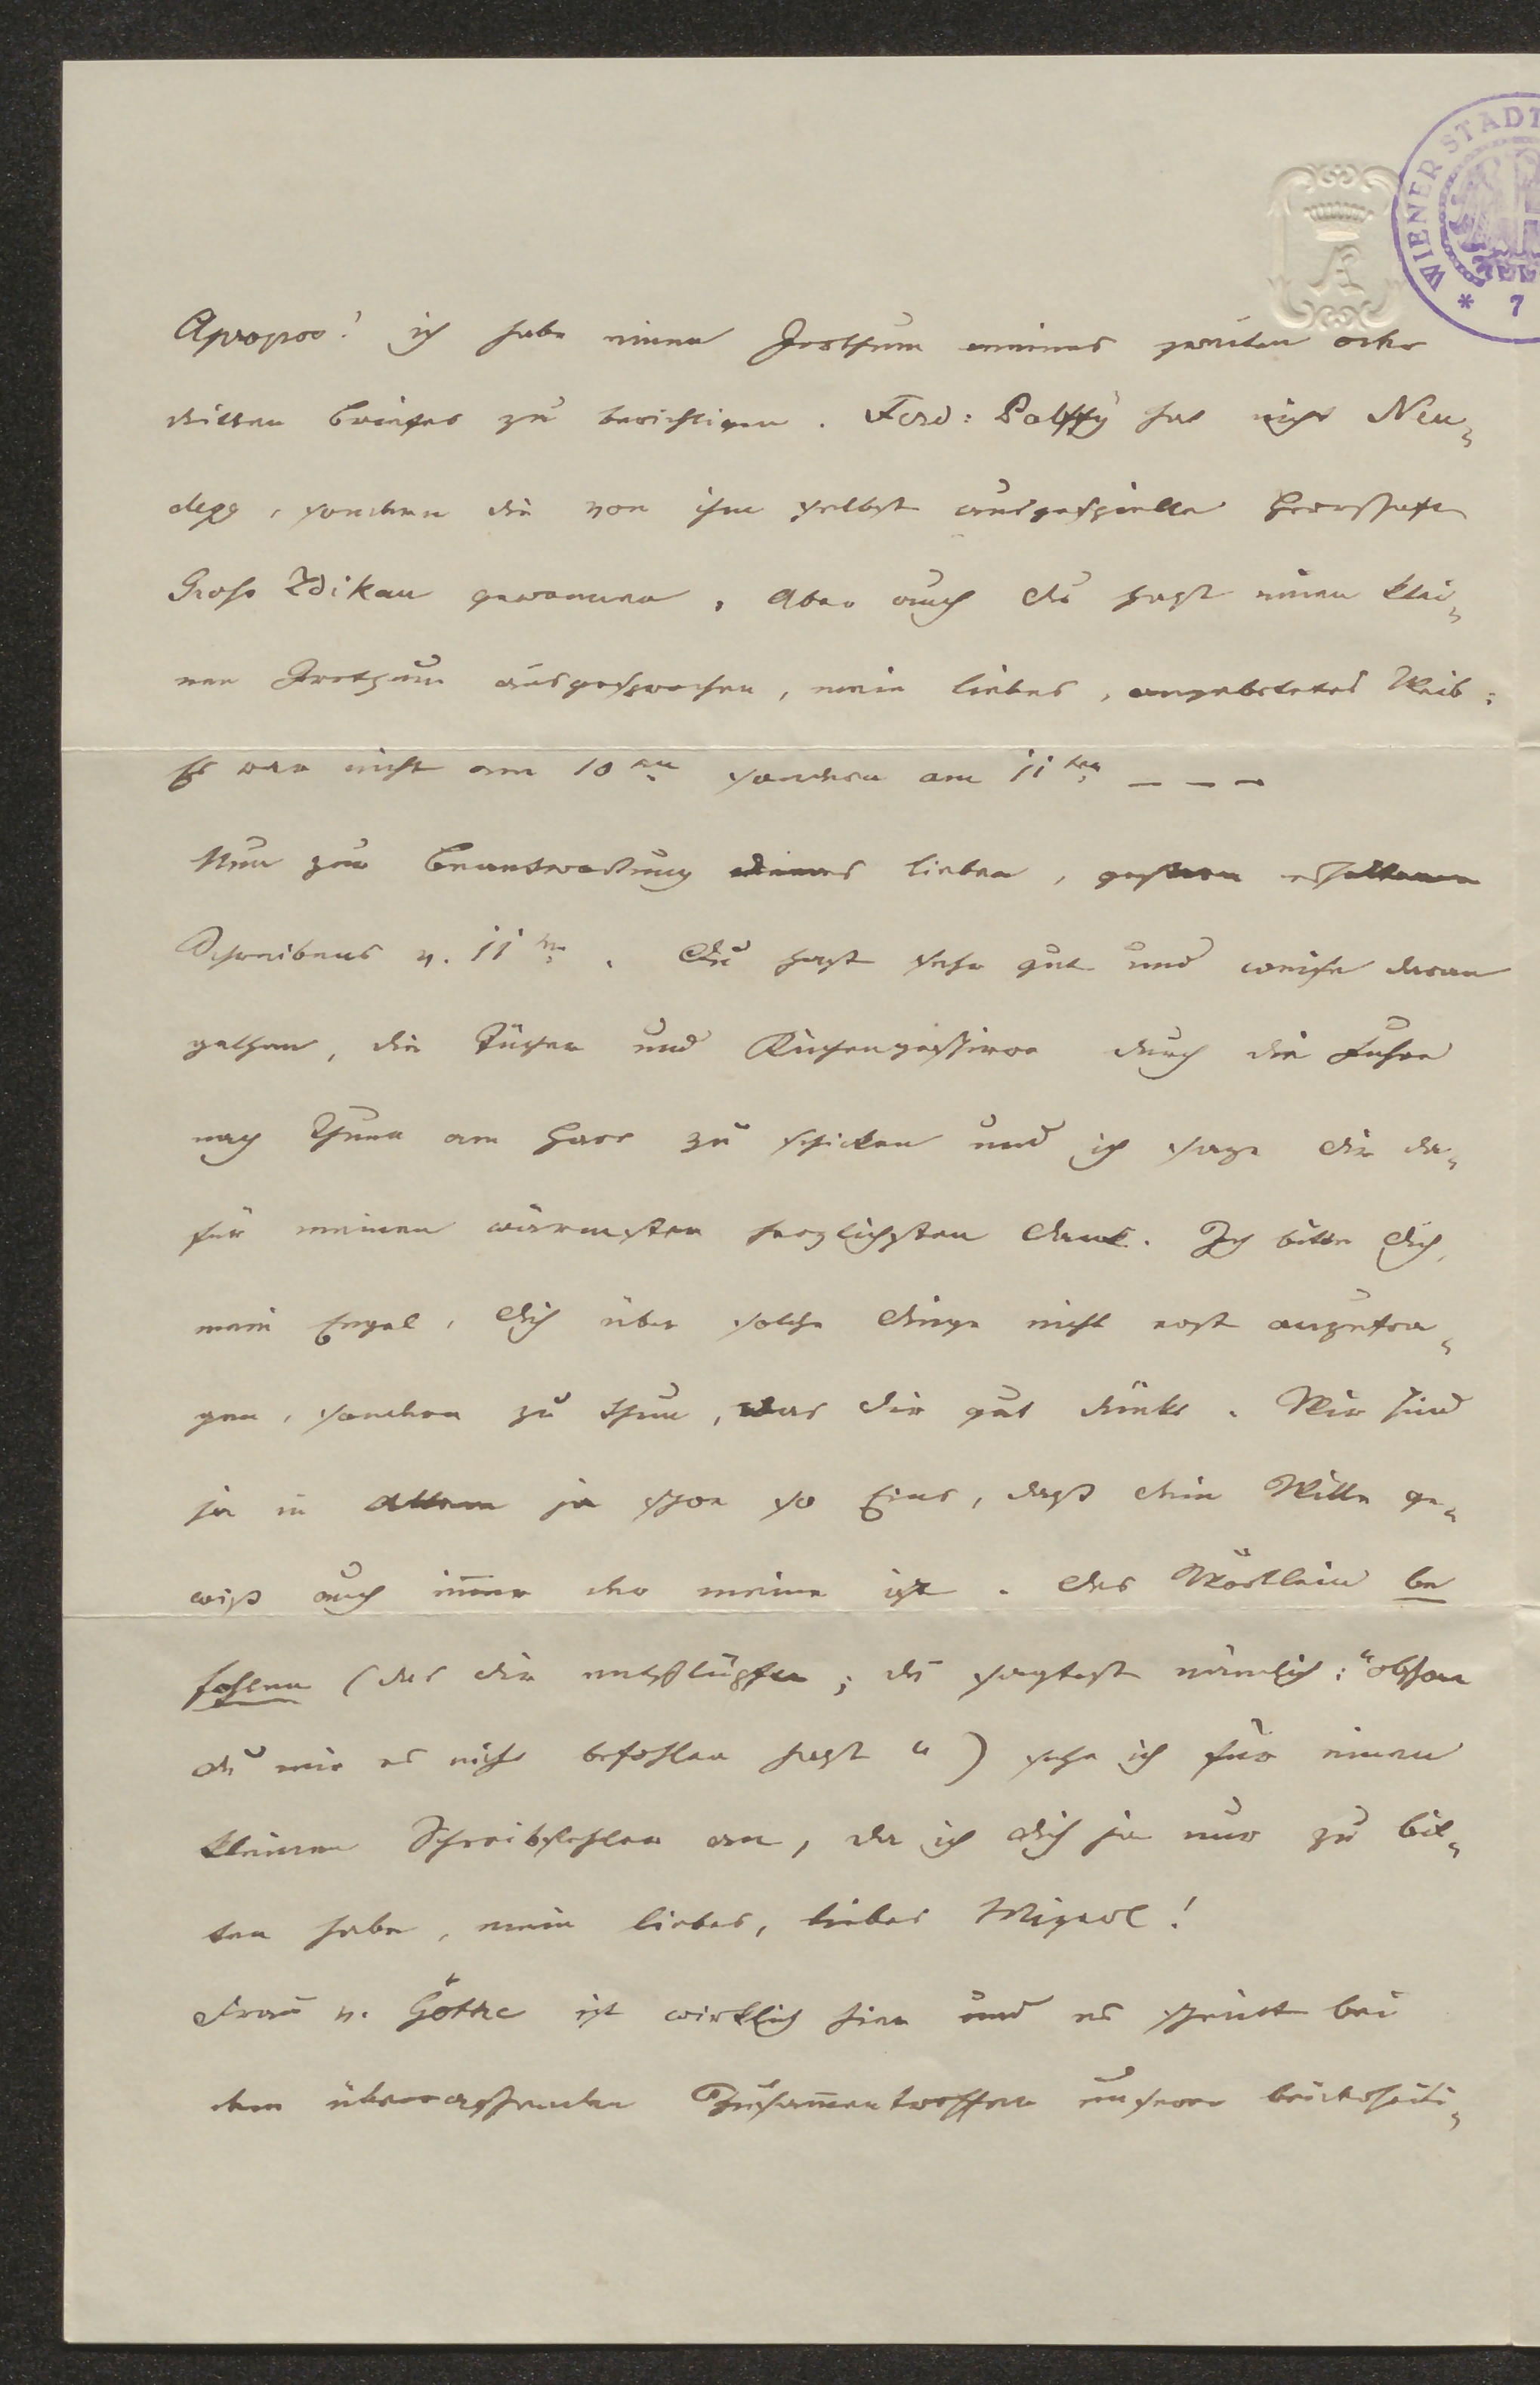 WIENER STADT
* 7
Apropos! ich habe einen Irrthum meines zweiten oder
dritten Briefes zu berichtigen. Ferd: Palffy hat nicht Neu=
degg, sondern die von ihm selbst ausgespielte Herrschaft
Gross Zdikau gewonnen. Aber auch du hast einen klei=
nen Irrthum ausgesprochen, mein liebes, angebetetes Weib:
Es war nicht am 10ten sondern am 11ten – – –
Nun zur Beantwortung deines lieben, gestern erhaltenen
Schreibens v. 11ten. Du hast sehr gut und weise daran
gethan, die Tücher und Küchengeschirre durch die Fuhre
nach Thurn am Hart zu schicken und ich sage dir da=
für meinen wärmsten herzlichsten Dank. Ich bitte dich,
mein Engel, dich über solche Dinge nicht erst anzufra=
gen, sondern zu thun, was dir gut dünkt. Wir sind
ja in Allem ja schon so Eins, daß dein Wille ge=
wiß auch im̅er der meine ist. Das Wörtlein be
fohlen (das dir entschlüpfte; du sagtest nämlich: "obschon
du mir es nicht befohlen hast") sehe ich für einen
kleinen Schreibfehler an, da ich dich ja nur zu bit=
ten habe, mein liebes, liebes Miezerl!
Frau v. Göthe ist wirklich hier und es scheint bei
dem überraschenden Zusam̅entreffen unserer beiderseiti=